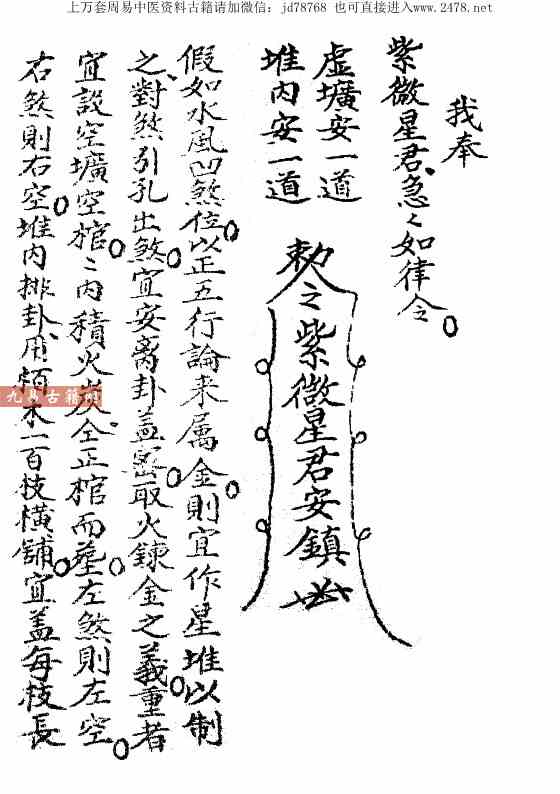 上万套周易中医资料古籍请加微信：jd78768 也可直接进入www.2478.net
我奉
紫微星君急々如律令
虚壙安一道
堆内安一道
勅令紫微星君安鎮
假如水風凹煞位以正五行論来属金則宜作星堆以制
之對煞引孔出煞宜安离卦盖密取火鍊金之義重者
宜設空壙空棺〻内積火炭仝正棺而塟左煞則左空
右煞則右空堆内排卦用栢木一百枝橫舖宜盖每枝長
九易古籍网